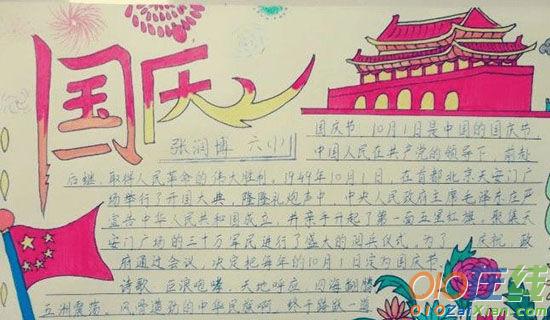 国庆
张润博 六(1)
国庆节，10月1日是中国的国庆节，
中国人民在共产党的领导下，前赴
后继，取得人民革命的伟大胜利，1949年10月1日，在首都北京天安门广
场举行了开国大典，隆隆礼炮声中，中央人民政府主席毛泽东庄严
宣告中华人民共和国成立，并亲手升起了第一面五星红旗，聚集天
安门广场的三十万军民进行了盛大的阅兵仪式，为了 庆祝，政
府通过会议，决定把每年的10月1日定为国庆节，
诗歌：巨浪咆哮，天地呼应，四海翻腾
五洲震荡，风雷激动的中华民族啊，终于踏
在线
ZaiXian.com